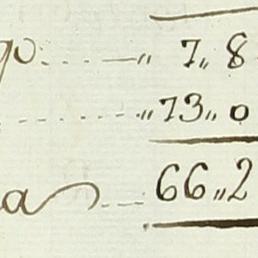 go....—" 7„ 8
......." 73„ 0
a --- 66„ 2